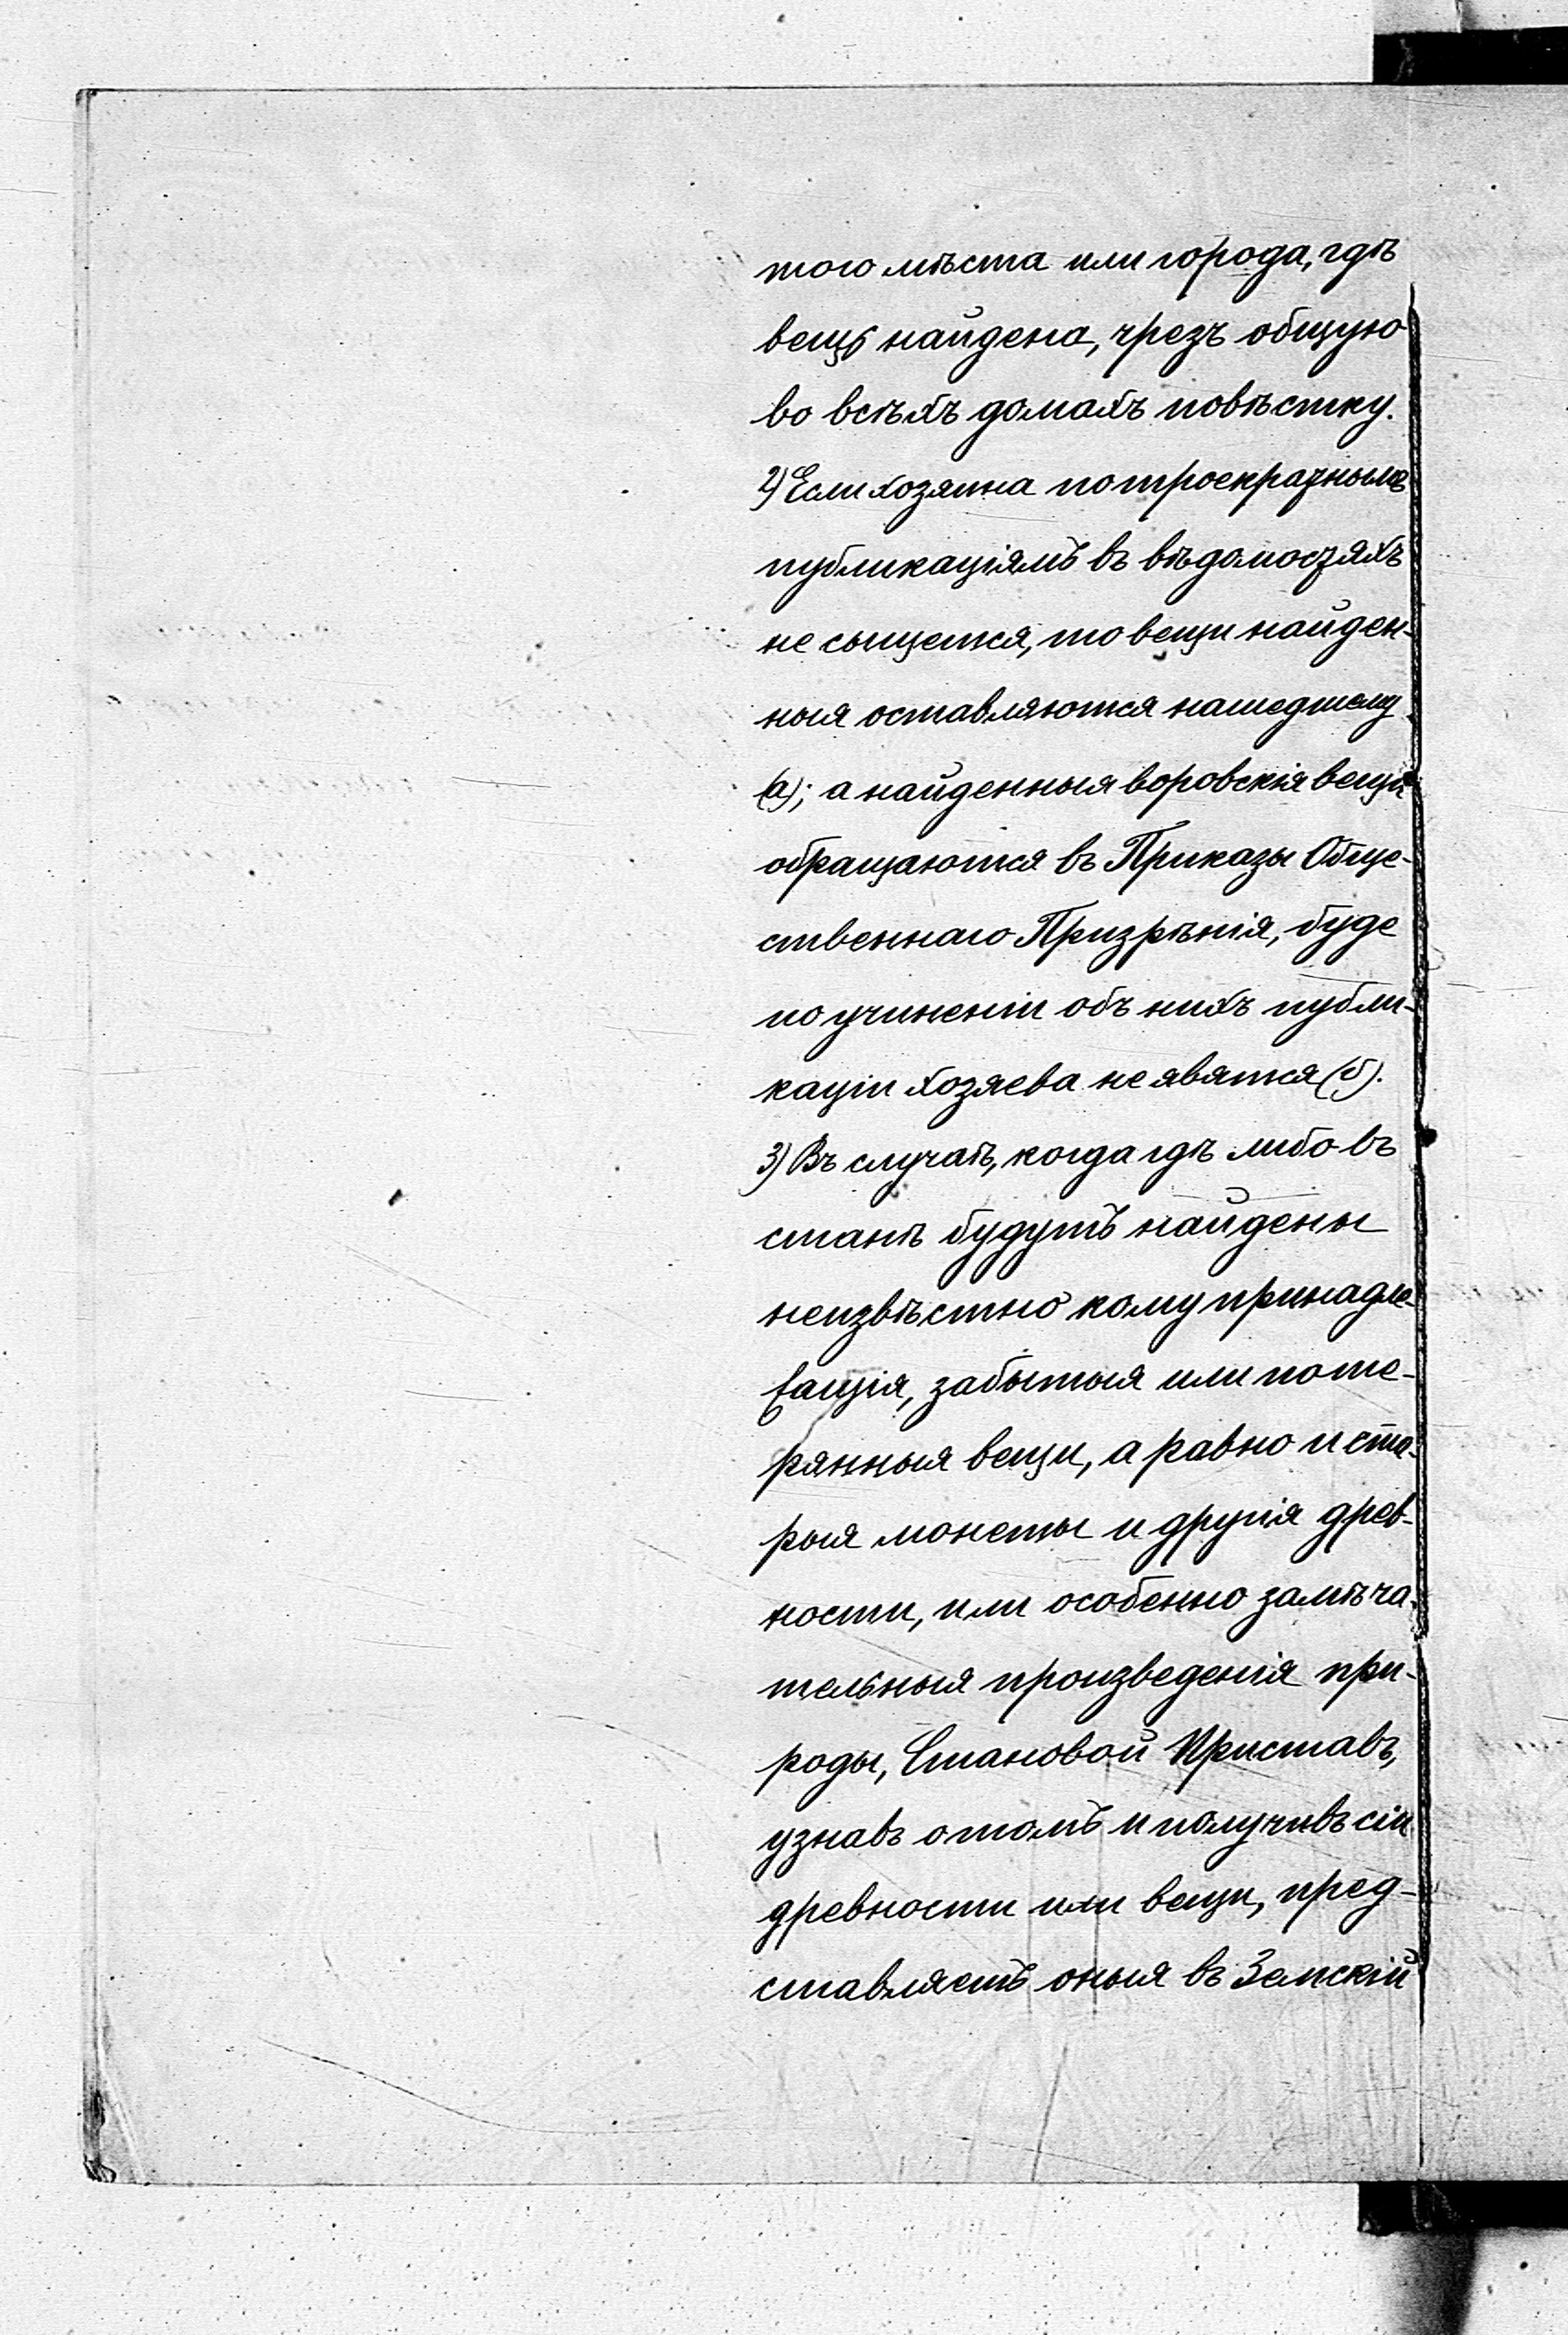 того мѣста или города, гдѣ
вещь найдена, чрезъ общую
во всѣхъ домахъ повѣстку.
2) Если хозяина по троекратнымъ
публикаціямъ въ вѣдомостяхъ
не сыщется, то вещи найден-
ныя оставляются нашедшему
(а); а найденныя воровскія вещи
обращаются въ Приказы Обще-
ственнаго Призрѣнія, буде
по учиненіи объ нихъ публи-
каціи хозяева не явятся (б).
3) Въ случаѣ, когда гдѣ либо въ
станѣ будутъ найдены
неизвѣстно кому принадле-
жащія, забытыя или поте-
рянныя вещи, а равно и ста-
рыя монеты и другія древ-
ности, или особенно замѣча-
тельныя произведенія при-
роды, Становой Приставъ,
узнавъ о томъ и получивъ сіи
древности или вещи, пред-
ставляетъ оныя въ Земскій